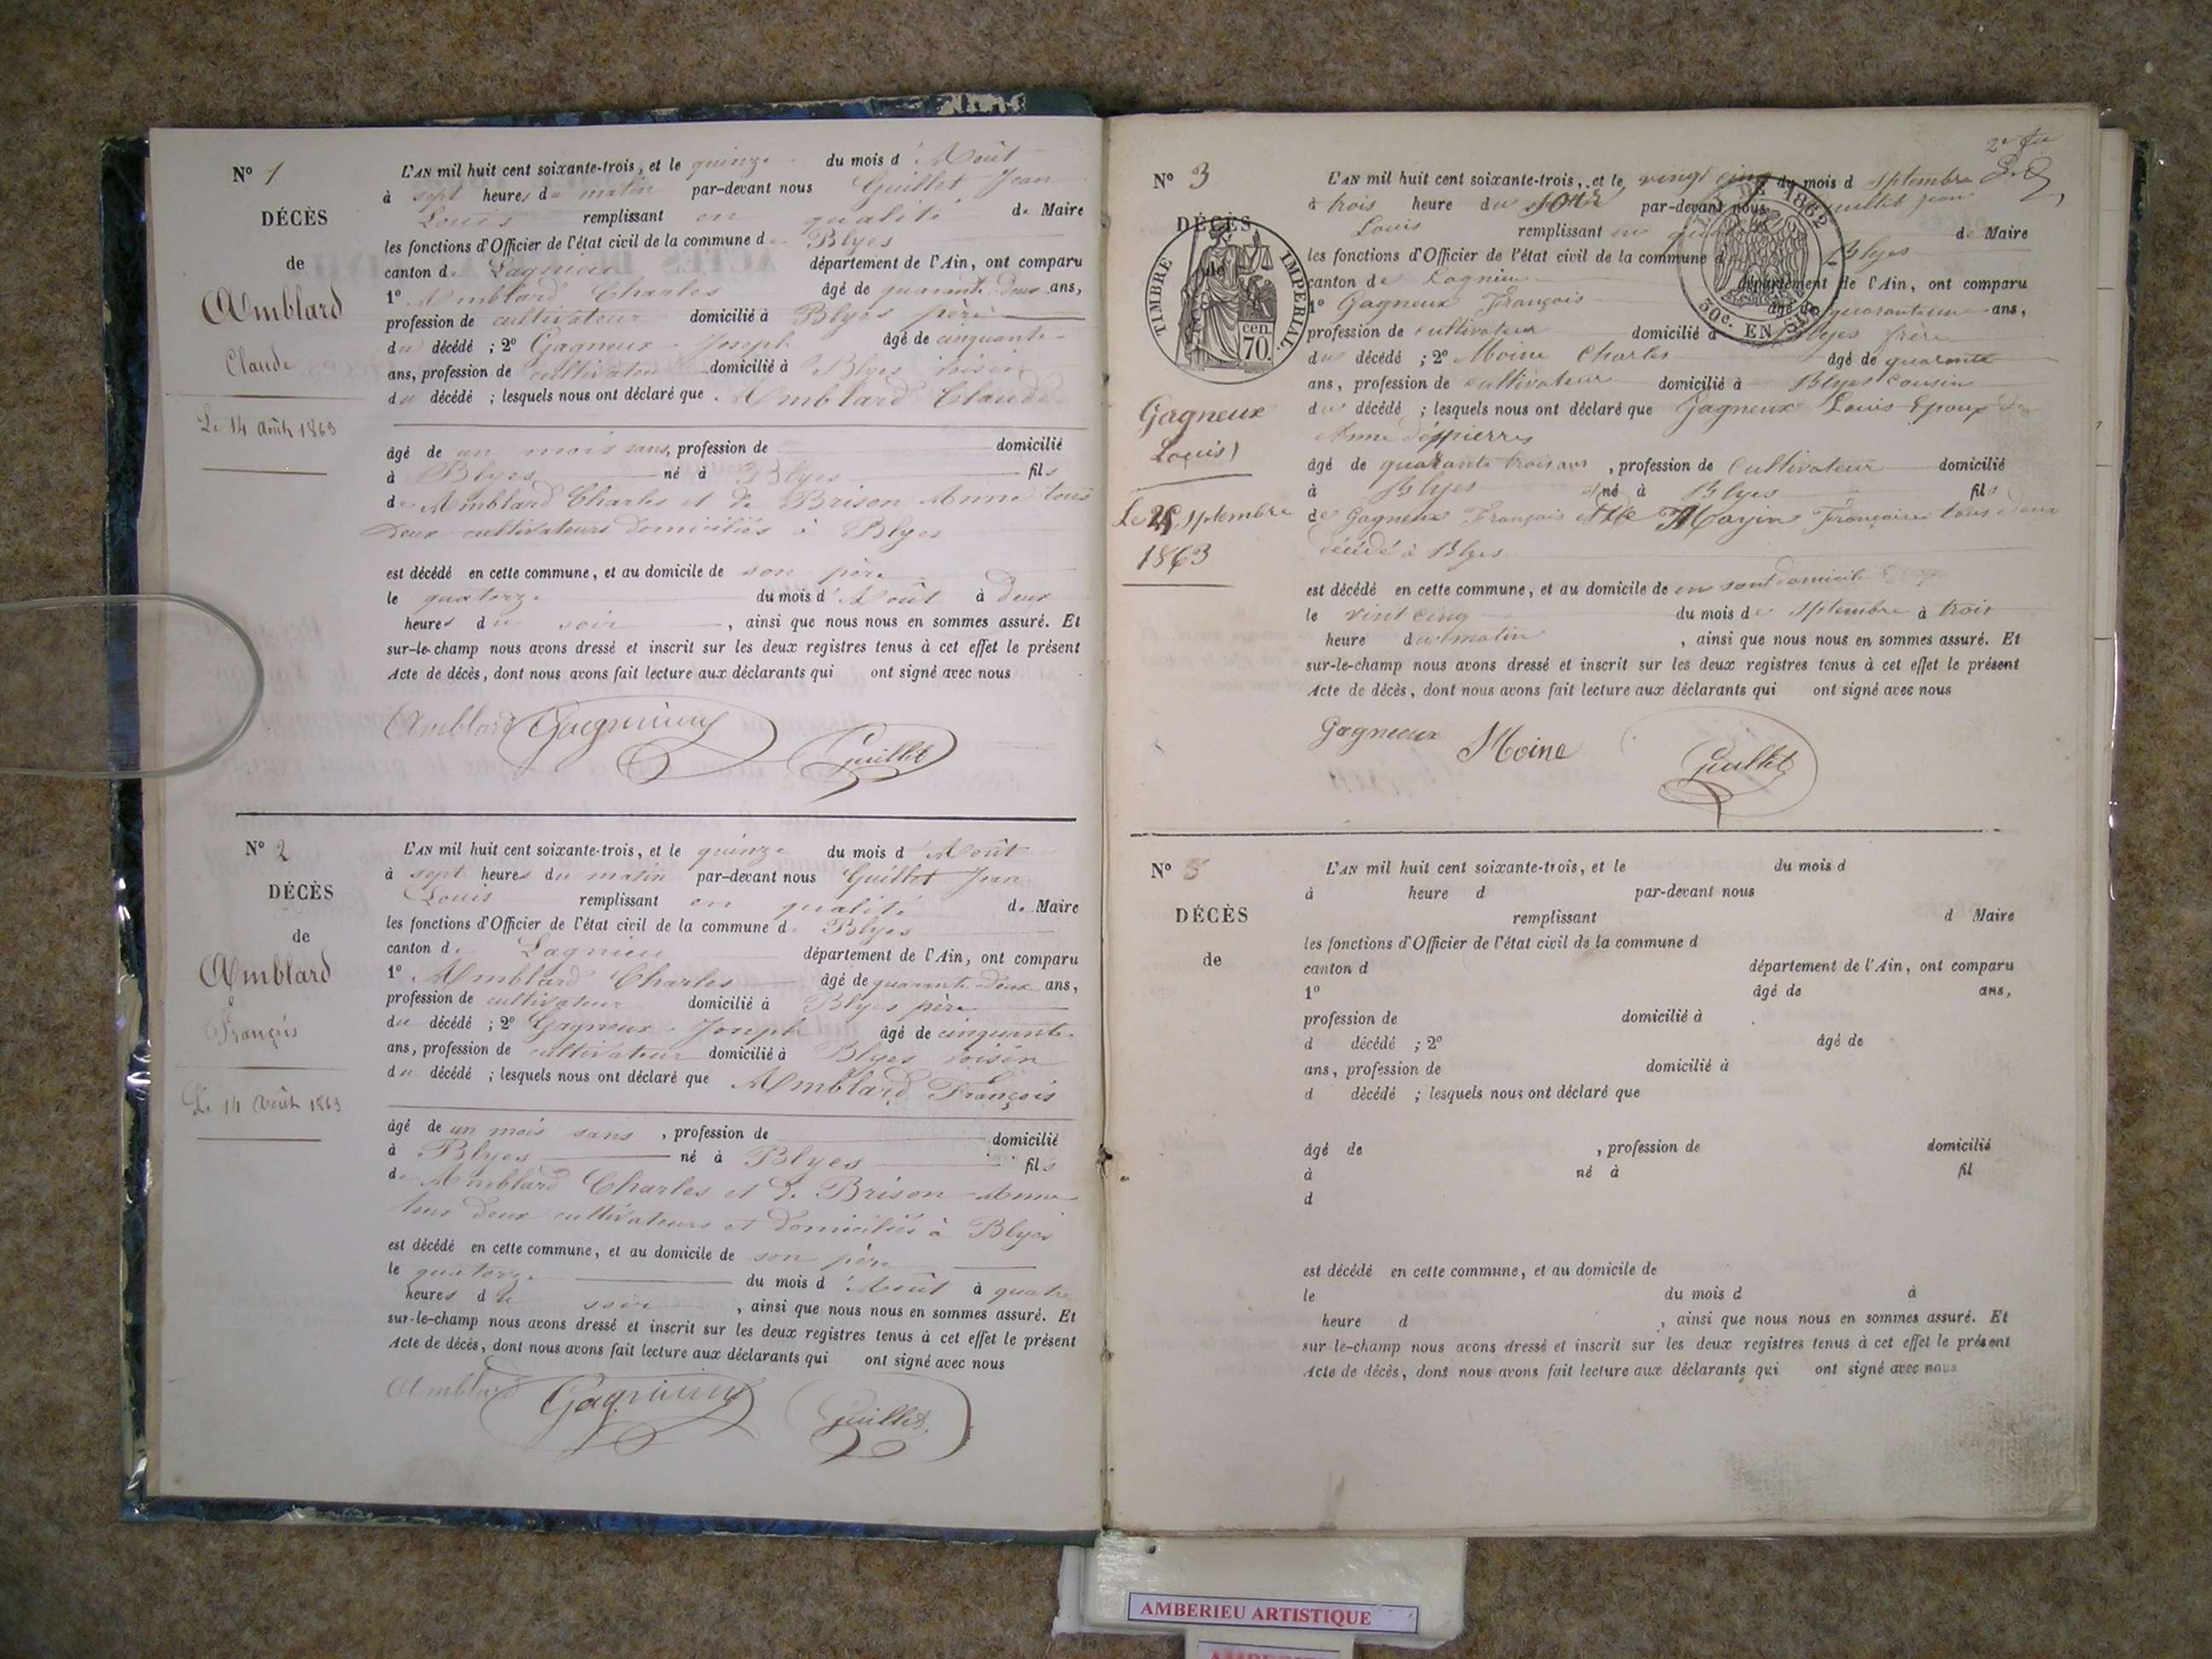 N° 1
DÉCÈS
de
Amblard
Claude
Le 14 Août 1863
L'AN mil huit cent soixante-trois, et le quinze du mois d'Août
à sept heures du matin par-devant nous Guillet Jean
Louis remplissant en qualité de Maire
les fonctions d'Officier de l'état civil de la commune de Blyes
canton de Lagnieu département de l'Ain, ont comparu
1° Amblard Charles âgé de quarante deux ans,
profession de cultivateur domicilié à Blyes père
du décédé ; 2° Gagneux Joseph âgé de cinquante
ans, profession de cultivateur domicilié à Blyes voisin
du décédé ; lesquels nous ont déclaré que Amblard Claude
âgé de un mois sans, profession de domicilié
à Blyes né à Blyes fils
de Amblard Charles et de Brison Anne tous
deux cultivateurs domiciliés à Blyes
est décédé en cette commune, et au domicile de son père
le quatorze du mois d'Août à deux
heures du soir, ainsi que nous nous en sommes assuré. Et
sur-le-champ nous avons dressé et inscrit sur les deux registres tenus à cet effet le présent
Acte de décès, dont nous avons fait lecture aux déclarants qui ont signé avec nous
Amblard Gagneux Guillet
N° 2
DÉCÈS
de
Amblard
François
Le 14 Août 1863
L'AN mil huit cent soixante-trois, et le quinze du mois d'Août
à sept heures du matin par-devant nous Guillet Jean
Louis remplissant en qualité de Maire
les fonctions d'Officier de l'état civil de la commune de Blyes
canton de Lagnieu département de l'Ain, ont comparu
1° Amblard Charles âgé de quarante-deux ans,
profession de cultivateur domicilié à Blyes père
du décédé ; 2° Gagneux Joseph âgé de cinquante
ans, profession de cultivateur domicilié à Blyes voisin
du décédé ; lesquels nous ont déclaré que Amblard François
âgé de un mois sans, profession de domicilié
à Blyes né à Blyes fils
de Amblard Charles et de Brison Anne
tous deux cultivateurs et domiciliés à Blyes
est décédé en cette commune, et au domicile de son père
le quatorze du mois d'Août à quatre
heures du soir, ainsi que nous nous en sommes assuré. Et
sur-le-champ nous avons dressé et inscrit sur les deux registres tenus à cet effet le présent
Acte de décès, dont nous avons fait lecture aux déclarants qui ont signé avec nous
Amblard Gagneux Guillet
N° 3
DÉCÈS
de
TIMBRE IMPERIAL
cen.
70.
Gagneux
Louis
Le 25 Septembre
1863
1862
30c. EN SUS
L'AN mil huit cent soixante-trois, et le vingt cinq du mois d Septembre
à trois heure du soir par-devant nous Guillet Jean
Louis remplissant en qualité de Maire
les fonctions d'Officier de l'état civil de la commune d Blyes
canton de Lagnieu département de l'Ain, ont comparu
1° Gagneux François âgé de quarante un ans,
profession de cultivateur domicilié à Blyes frère
du décédé ; 2° Moine Charles âgé de quarante
ans, profession de cultivateur domicilié à Blyes cousin
du décédé ; lesquels nous ont déclaré que Gagneux Louis Epoux de
Anne déspierres
âgé de quarante trois ans, profession de Cultivateur domicilié
à Blyes né à Blyes fils
de Gagneux François et de Mayin Françoise tous deux
décédé à Blyes
est décédé en cette commune, et au domicile de en sont domicile
le vint cinq du mois de Septembre à trois
heure du matin, ainsi que nous nous en sommes assuré. Et
sur-le-champ nous avons dressé et inscrit sur les deux registres tenus à cet effet le présent
Acte de décès, dont nous avons fait lecture aux déclarants qui ont signé avec nous
Gagneux Moine Guillet
N°
DÉCÈS
de
L'AN mil huit cent soixante-trois, et le du mois d
à heure d par-devant nous
remplissant d Maire
les fonctions d'Officier de l'état civil de la commune d
canton d département de l'Ain, ont comparu
1° âgé de ans,
profession de domicilié à
d décédé ; 2° âgé de
ans, profession de domicilié à
d décédé ; lesquels nous ont déclaré que
âgé de , profession de domicilié
à né à fil
d
est décédé en cette commune, et au domicile de
le du mois d à
heure d , ainsi que nous nous en sommes assuré. Et
sur le-champ nous avons dressé et inscrit sur les deux registres tenus à cet effet le présent
Acte de décès, dont nous avons fait lecture aux déclarants qui ont signé avec nous
AMBERIEU ARTISTIQUE